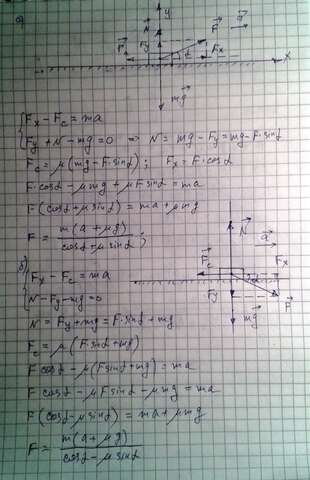 а)
Fx - Fc = ma
Fy + N - mg = 0 => N = mg - Fy = mg - F sinα
Fc = μ(mg - F sinα); Fx = F cosα
F cosα - μmg + μF sinα = ma
F(cosα + μ sinα) = ma + μmg
F = m(a + μg) / cosα + μ sinα;
y
N
Fy
F
a
Fx
α
x
mg
б)
Fx - Fc = ma
N - Fy - mg = 0
N = Fy + mg = F sinα + mg
Fc = μ(F sinα + mg)
F cosα - μ(F sinα + mg) = ma
F cosα - μF sinα - μmg = ma
F(cosα - μ sinα) = ma + μmg
F = m(a + μg) / cosα - μ sinα
N
a
Fc
Fx
α
Fy
F
mg